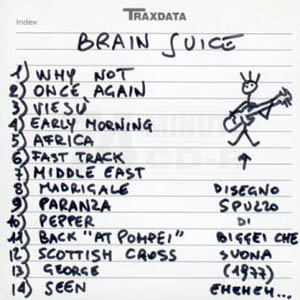 TRAXDATA
Index
BRAIN SUICE
1) WHY NOT
2) ONCE, AGAIN
3) VIESÙ
4) EARLY MORNING
5) AFRICA
6) FAST TRACK
7) MIDDLE EAST
8) MADRIGALE
9) PARANZA
10) PEPPER
11) BACK "AT POMPEI"
12) SCOTTISH CROSS
13) GEORGE
14) SEEN
DISEGNO
SPUZZO
DI
BIGGEI CHE
SUONA
(1977)
EHEHEH...